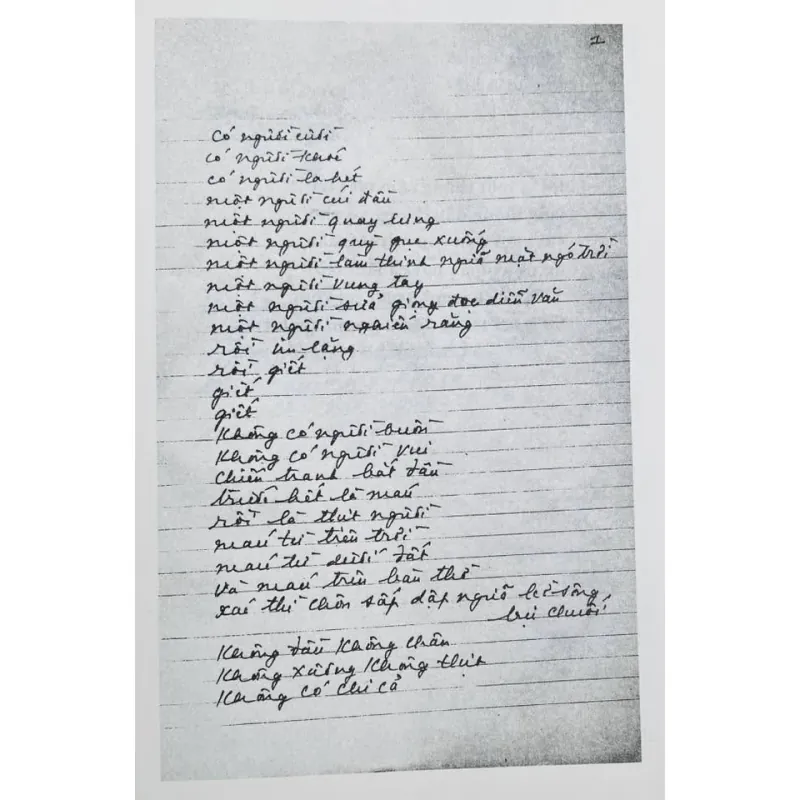 1
có người cười
có người khóc
có người la hét
một người cúi đầu
một người quay lưng
một người quỳ gục xuống
một người làm thinh ngửa mặt ngó trời
một người vung tay
một người sửa giọng đọc diễn văn
một người nghiến răng
rồi im lặng
rồi giết
giết
giết
Không có người buồn
Không có người vui
Chiến tranh bắt đầu
trước hết là máu
rồi là thịt người
máu từ trên trời
máu từ dưới đất
Và máu trên bàn thờ
xác thì chôn sấp dập ngoài bờ sông
bụi chuối
Không đầu Không chân
Không xương Không thịt
Không có chi cả